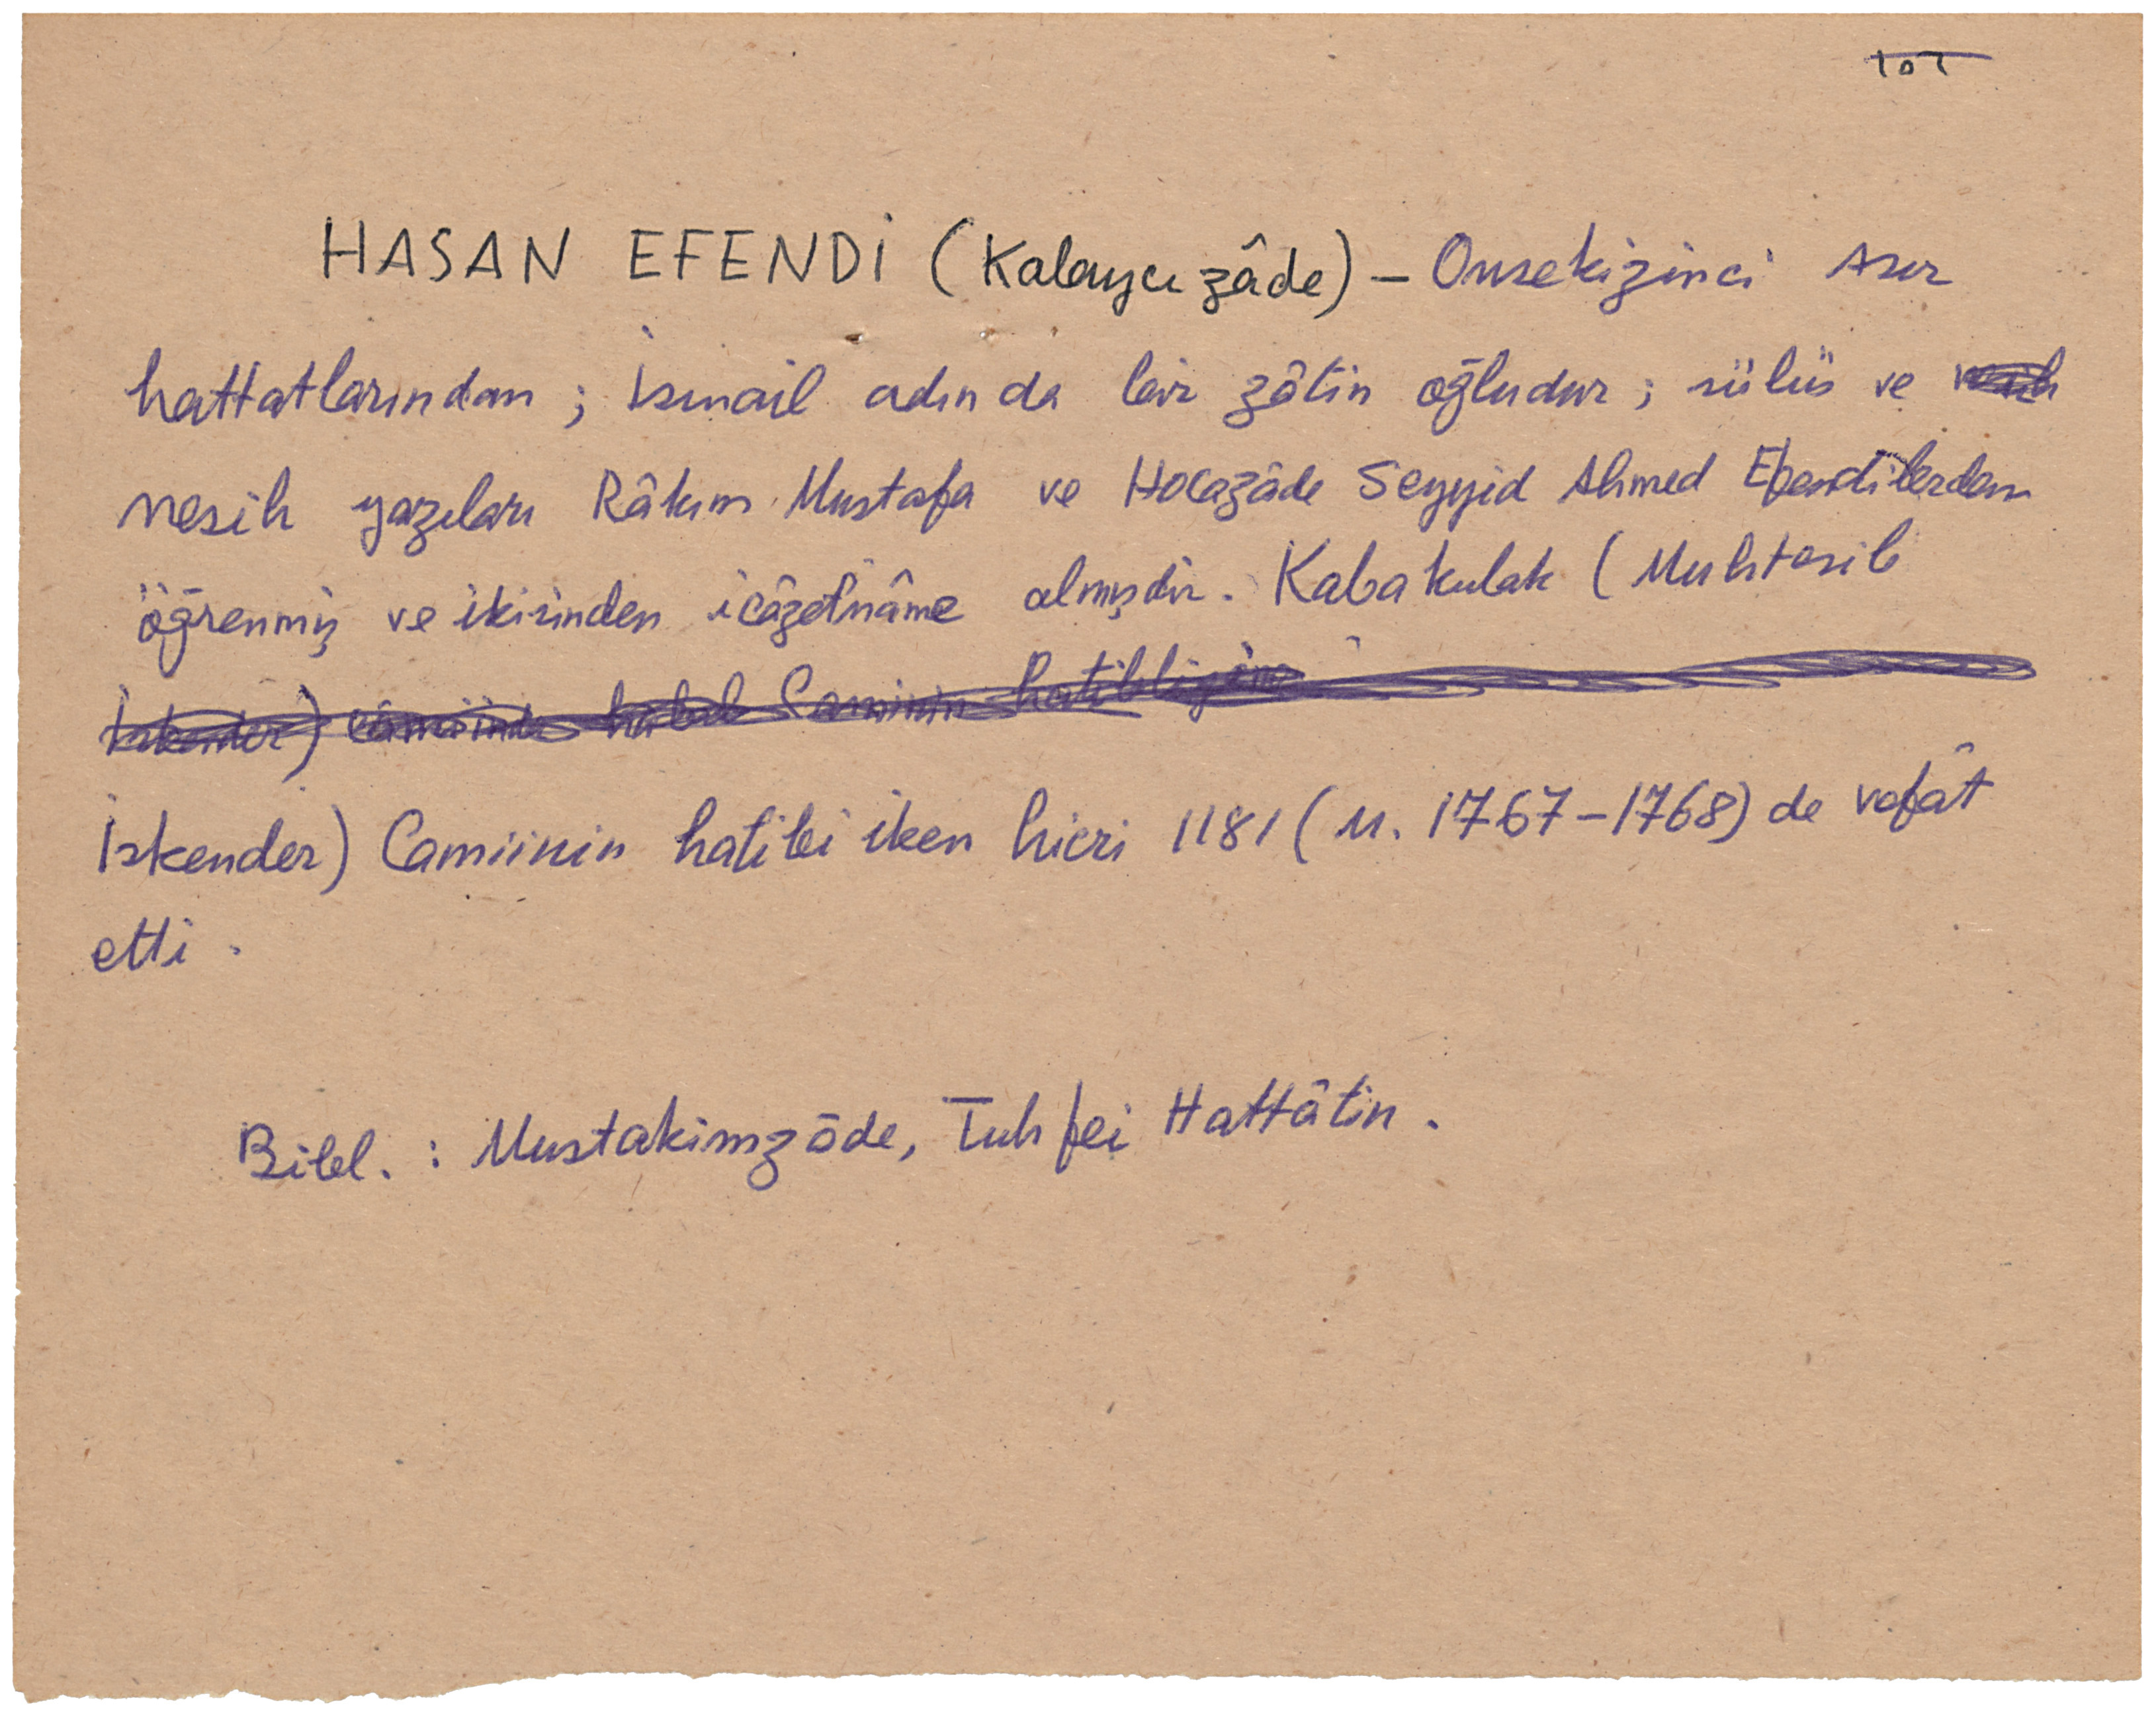 HASAN EFENDİ (Kalaycızâde) – Onsekizinci asır
hattatlarından ; İsmail adında bir zâtin oğludur ; sülüs ve
nesih yazıları Râkım Mustafa ve Hocazâde Seyyid Ahmed Efendilerden
öğrenmiş ve ikisinden icâzetnâme almışdır. Kabakulak (Muhtesib
İskender) câmiinde hatib Camiinin hatibliğine
İskender) Camiinin hatibi iken hicri 1181 (M. 1767–1768) de vefât
etti .
Bibl. : Mustakimzâde, Tuhfei Hattâtin .